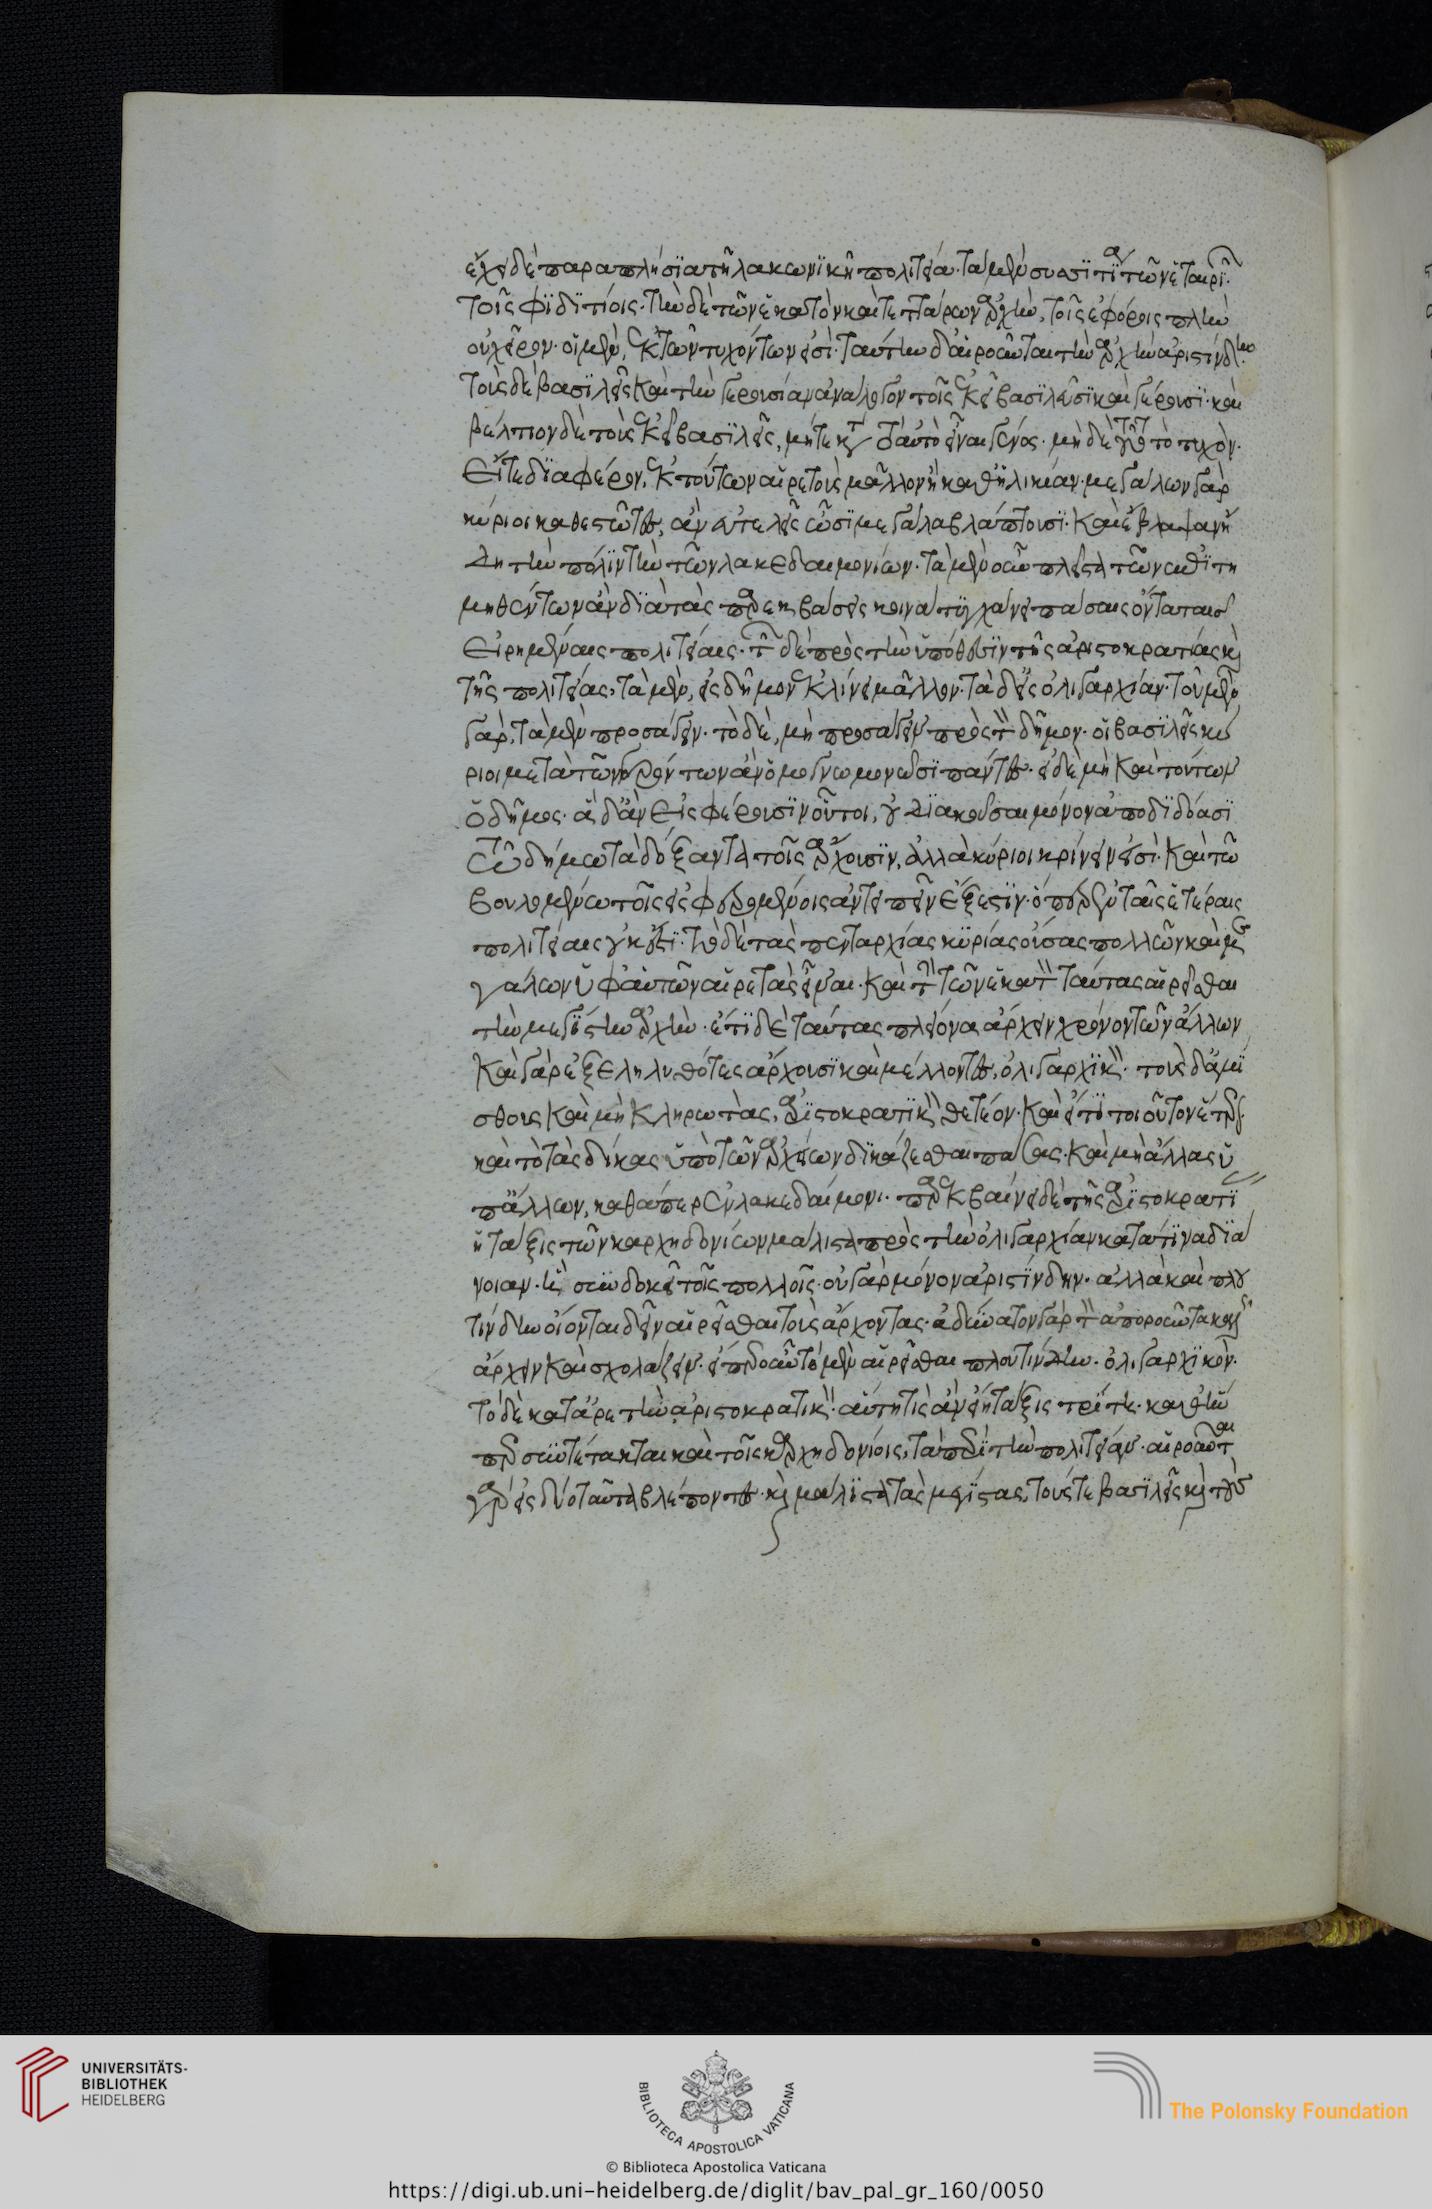 ἔχει δὲ παραπλήσϊα τῆ λακωνϊκῆ πολιτεία· τὰ μὲν συσσίτϊα τῶν ἑταιρϊῶν
τοῖς φϊδϊτίοις· τὴν δὲ τῶν ἑκατὸν καὶ τεττάρων ἀρχὴν, τοῖς ἐφόροις πλὴν
οὐ χεῖρον· οἱ μὲν, ἐκ τῶν τυχόντων εἰσὶ· ταύτην δ' αἱροῦνται τὴν ἀρχὴν ἀριστίνδην·
τοὺς δὲ βασϊλεῖς καὶ τὴν γερουσίαν ἀνάλογον τοῖς ἐκεῖ βασϊλεῦσϊ καὶ γέρουσϊ· καὶ
βέλτιον δὲ τοὺς ἐκεῖ βασϊλεῖς, μήτε κατὰ τὸ αὐτὸ εἶναι γένος· μὴ δὲ τοῦτο τὸ τυχὸν·
εἴτε δϊαφέρον, ἐκ τούτων αἱρετοὺς μᾶλλον ἢ καθ' ἡλικίαν· μεγάλων γὰρ
κύριοι καθεστῶτες, ἂν εὐτελεῖς ὦσϊ μεγάλα βλάπτουσϊ· καὶ ἔβλαψαν ἤ
δη τὴν πόλϊν τὴν τῶν λακεδαιμονίων· τὰ μὲν οὖν πλεῖστα τῶν ἐπϊτϊ
μηθέντων ἂν δϊὰ τὰς παρεκβάσεις κοινὰ τϋγχάνει πάσαις ὄντα ταῖς
εἰρημέναις πολιτείαις· τῶν δὲ πρὸς τὴν ὑπόθεσϊν τῆς ἀριστοκρατίας καὶ
τῆς πολιτείας, τὰ μὲν, εἰς δῆμον ἐκκλίνει μᾶλλον· τὰ δ' εἰς ὀλιγαρχίαν· τοῦ μὲν
γὰρ, τὰ μὲν προσάγειν· τὸ δὲ, μὴ προσάγειν πρὸς τὸν δῆμον· οἱ βασϊλεῖς κύ
ριοι μετὰ τῶν γερόντων ἂν ὁμογνωμονῶσϊ πάντες· εἰ δὲ μὴ καὶ τούτων
ὁ δῆμος· ἃ δ' ἂν εἰσφέρουσϊν οὗτοι, οὐ δϊακοῦσαι μόνον ἀποδϊδόασϊ
τῶ δήμω τὰ δόξαντα τοῖς ἄρχουσϊν, ἀλλὰ κύριοι κρίνειν εἰσὶ· καὶ τῶ
βουλομένω τοῖς εἰσφερομένοις ἀντειπεῖν ἔξεστϊν· ὅπερ ἐν ταῖς ἑτέραις
πολιτείαις οὐκ ἔστϊ· τὸ δὲ τὰς πενταρχίας κϋρίας οὔσας πολλῶν καὶ με
γάλων ὑφ' αὑτῶν αἱρετὰς εἶναι· καὶ τὴν τῶν ἑκατὸν ταύτας αἱρεῖσθαι
τὴν μεγίστην ἀρχὴν· ἔτϊ δὲ ταύτας πλείονα ἄρχειν χρόνον τῶν ἄλλων,
καὶ γὰρ ἐξεληλυθότες ἄρχουσϊ καὶ μέλλοντες, ὀλιγαρχϊκὸν· τοὺς δ' ἀμϊ
σθους καὶ μὴ κληρωτὰς, ἀρϊστοκρατϊκὸν θετέον· καὶ εἴ τϊ τοιοῦτον ἕτερον·
καὶ τὸ τὰς δίκας ὑπὸ τῶν ἀρχείων δϊκάζεσθαι πάσας· καὶ μὴ ἄλλας ὑ
π' ἄλλων, καθάπερ ἐν λακεδαίμονι· παρεκβαίνει δὲ τῆς ἀρϊστοκρατϊ
ἡ τάξις τῶν καρχηδονίων μάλιστα πρὸς τὴν ὀλιγαρχίαν κατά τϊνα δϊά
νοιαν· ἣ συνδοκεῖ τοῖς πολλοῖς· οὐ γὰρ μόνον ἀριστϊνδην· ἀλλὰ καὶ πλου
τίνδην οἴονται δεῖν αἱρεῖσθαι τοὺς ἄρχοντας· ἀδύνατον γὰρ τὸν ἀποροῦντα καλῶς
ἄρχειν καὶ σχολάζειν· εἴπερ οὖν τὸ μὲν αἱρεῖσθαι πλουτίνδην· ὀλιγαρχϊκὸν·
τὸ δὲ κατ' ἀρετὴν ἀριστοκρατικὸν· αὕτη τὶς ἂν εἴη τάξις τρίτη· καθ' ἣν
περ συντέτακται καὶ τοῖς καρχηδονίοις, τὰ περϊ τὴν πολιτείαν· αἱροῦνται
γὰρ εἰς δύο ταῦτα βλέποντες· καὶ μάλϊστα τὰς μεγίστας, τούς τε βασϊλεῖς καὶ τοὺς
UNIVERSITÄTS-
BIBLIOTHEK
HEIDELBERG
BIBLIOTECA APOSTOLICA VATICANA
The Polonsky Foundation
© Biblioteca Apostolica Vaticana
https://digi.ub.uni-heidelberg.de/diglit/bav_pal_gr_160/0050